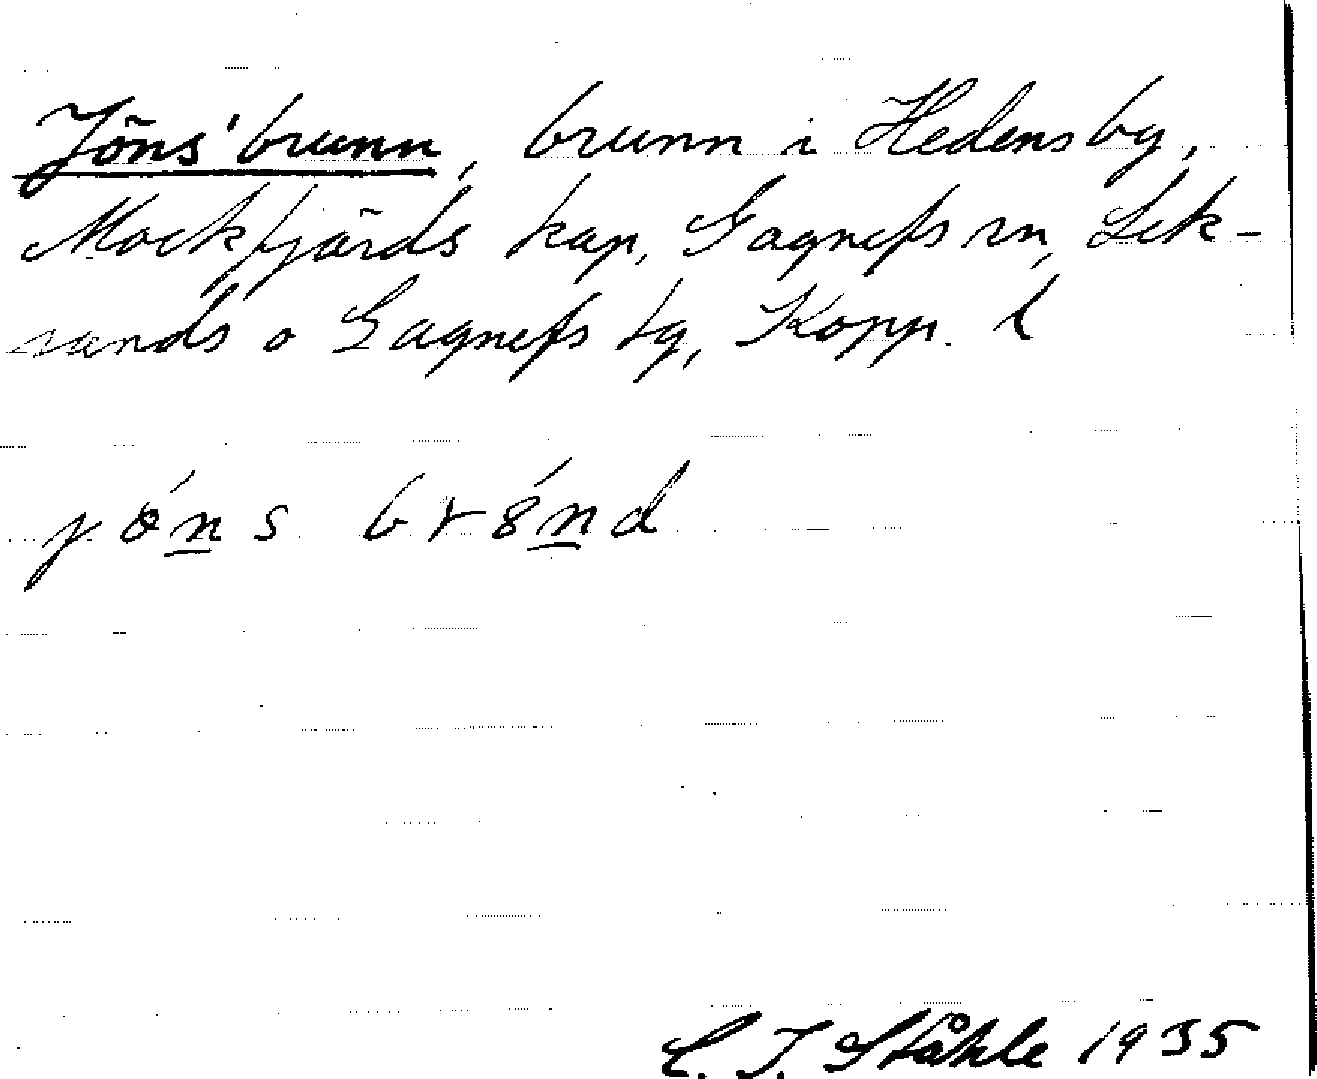 Jöns' brunn, brunn i Hedensby,
Mockfjärds kap, Gagnefs sn, Lek-
sands o Gagnefs tg, Kopp. l
jö́ns br8́nd
C. I. Ståhle 1935